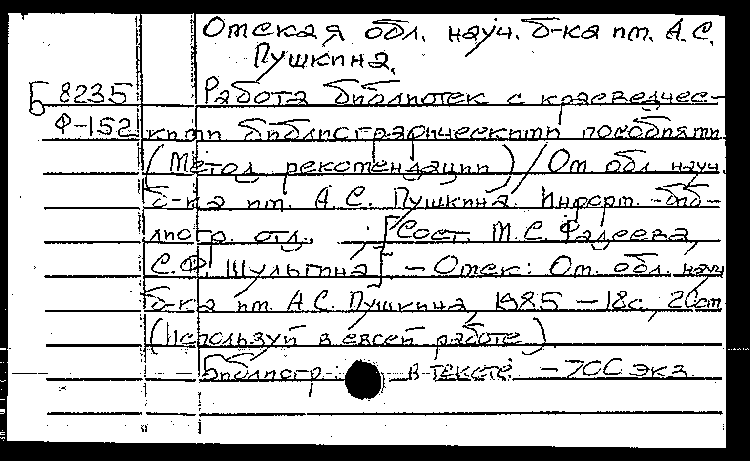 Омская обл. науч. б-ка им. А.С.
Пушкина.
Б 8235 Работа библиотек с краеведчес-
Ф-152 кими библиографическими пособиями
(Метод. рекомендации) / Ом. обл. науч.
б-ка им. А.С. Пушкина. Информ.-биб-
лиогр. отд. ; [Сост. М.С. Фадеева,
С.Ф. Шульгина]. – Омск: Ом. обл. науч
б-ка им. А.С. Пушкина, 1985 – 18с., 20см
(Используй в своей работе)
Библиогр.: в тексте. – 700 экз.